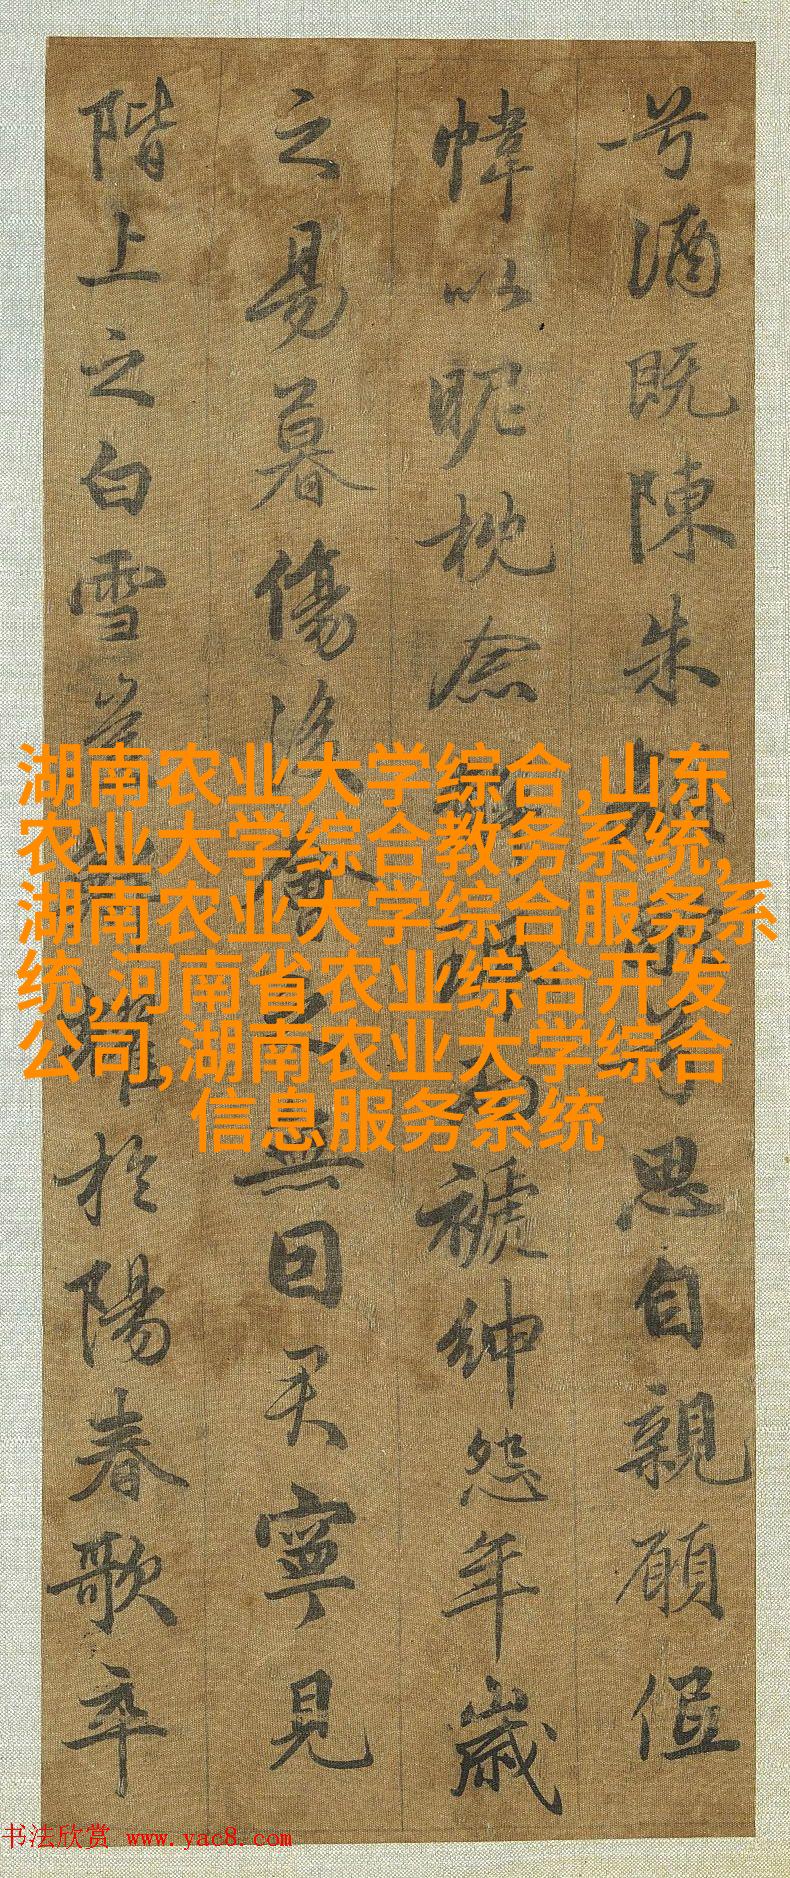 兮酒既陳朱兮思自親願低
幃以昵枕念而褫紳怨年歲
之易暮傷後會之無因君寧見
階上之白雪豈耀於陽春歌卒
湖南农业大学综合,山东
农业大学综合教务系统,
湖南农业大学综合服务系
统,河南省农业综合开发
公司,湖南农业大学综合
信息服务系统
书法欣赏 www.yac8.com